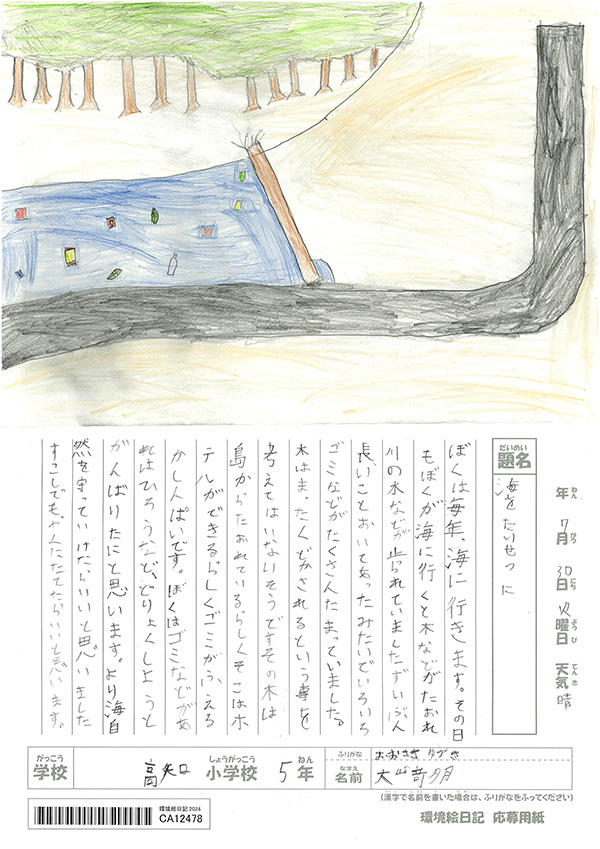 だいめい
題名
海をたいせつに
年 ねん
7月 がつ
30日 にち
火曜日 ようび
天気 てんき 晴
ぼくは毎年、海に行きます。その日
もぼくが海に行くと木などがたおれ
川の水などが止られていましたずいぶん
長いことおいてあったみたいでいろいろ
ゴミなどがたくさんたまっていました。
木はまったくどかされるという事を
考えてはいないそうですその木は
島からたおれているらしくそこはホ
テルができるらしくゴミがふえる
かしんぱいです。ぼくはゴミなどがあ
ればひろうなど、どりょくしようと
がんばりたにと思います。より海自
然を守っていけたらいいと思いました
すこしでも、やくにたてたらいいと思います。
がっこう
学校
高矢口
しょうがっこう
小学校
5
ねん
年
ふりがな
おおさき
なまえ
名前
(漢字で名前を書いた場合は、ふりがなをふってください)
環境絵日記2024
CA12478
環境絵日記 応募用紙